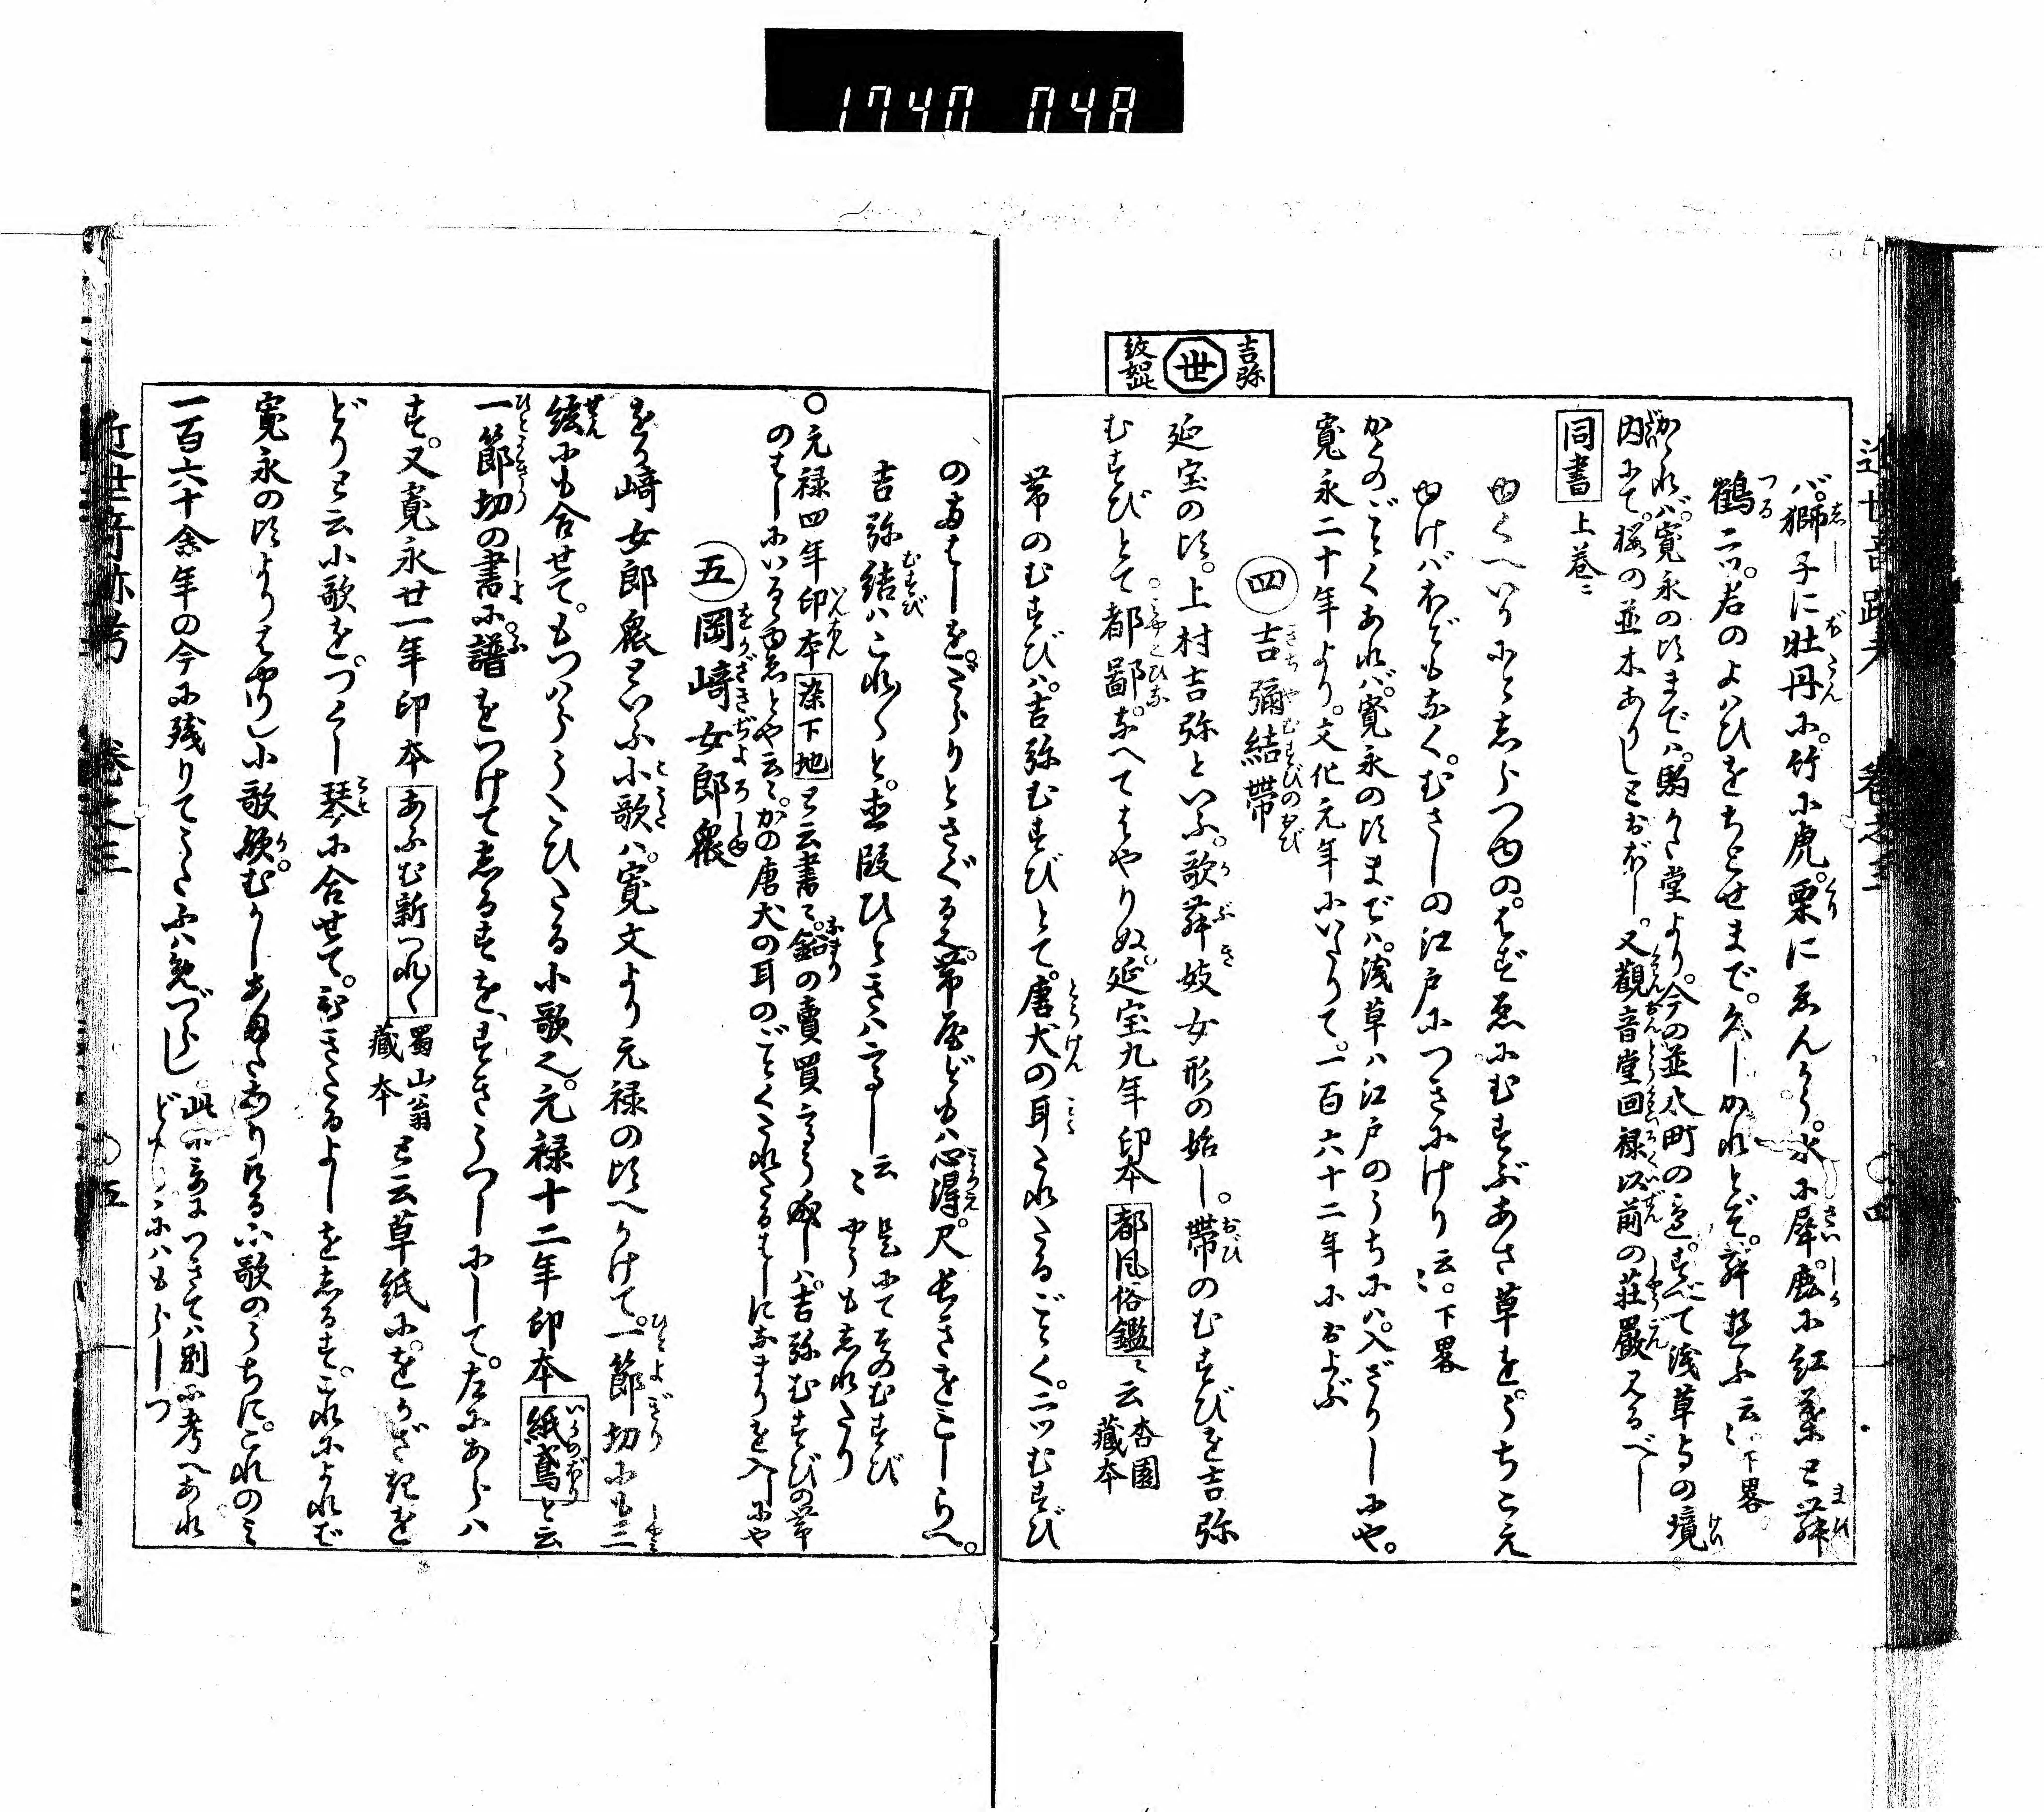 1740 048
吉弥
世
紋如此
バ獅子に牡丹に竹に虎栗にゑんかう水に犀鹿に紅葉と舞
鶴二ツ君のよハひをちとせまで久しかれとぞ舞遊ふ云々下畧
かゝれバ寛永の頃までハ駒かた堂より今の並木町の辺すべて浅草寺の境
内にて桜の並木ありしとおぼし又観音堂回禄以前の荘厳見るべし
同書 上巻ニ
ゆくへいかにとしらつゆのはずゑにむすぶあさ草をうちこえ
ゆけバほどもなくむさしの江戸につきにけり云々下畧
かくのごとくあれバ寛永の頃までハ浅草ハ江戸のうちにハ入ざりしにや
寛永二十年より文化元年にいたりて一百六十二年におよぶ
四 吉彌結帯
延宝の頃上村吉弥といふ歌舞妓女形の始し帯のむすびを吉弥
むすびとて都鄙なへてはやりぬ延宝九年印本 都風俗鑑ニ云 杏園蔵本
帯のむすびハ吉弥むすびとて唐犬の耳たれたるごとく二ツむすび
のあはしをだらりとさぐる也帯屋どもハ心得尺長きをこしらへ
吉弥結ハこれ〳〵と巻段ひときハ高し云々 是にてそのむすびやうもしれたり
○元禄四年印本 染下地と云書ニ鉛の賣買高うなりしハ吉弥むすびの帯
のはしにいるゆゑとや云々かの唐犬の耳のごとくたれたるはしになまりを入しにや
五 岡﨑女郎衆
をか﨑女郎衆といふ小歌ハ寛文より元禄の頃へかけて一節切にも三
絃にも合せてもつハらうたひたる小歌也元禄十二年印本 紙鳶と云
一節切の書に譜をつけてしるすをすきうつしにして左にあらハ
す又寛永廿一年印本 あふむ新つれ〳〵 蜀山翁蔵本 と云草紙にをかざきを
どりと云小歌をつくし琴に合せて引きたるよしをしるすこれによれば
寛永の頃よりはやりし小歌歟むかしあまたありける小歌のうちにこれのミ
一百六十余年の今に残りてうたふハめづらし 此小哥につきてハ別に考へあれどもこゝにハもらしつ
近世奇跡考 巻之三 ○四
近世奇跡考 巻之三 ○五